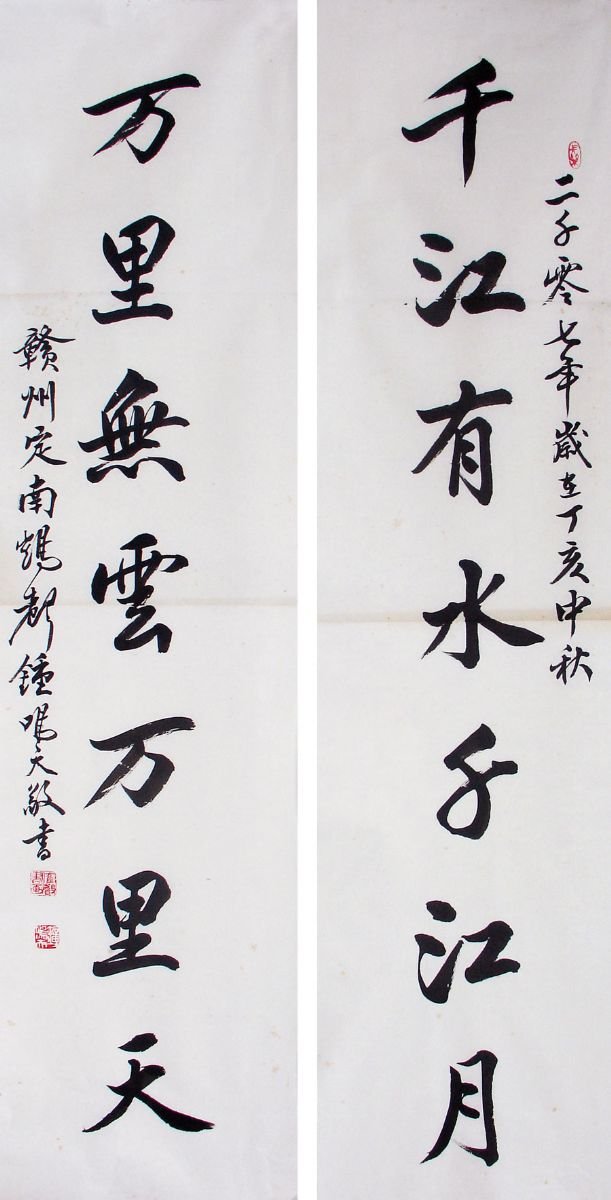 千江有水千江月
二千零七年歲在丁亥中秋
万里無雲万里天
贛州定南鵝鄉鍾鳴天敬書